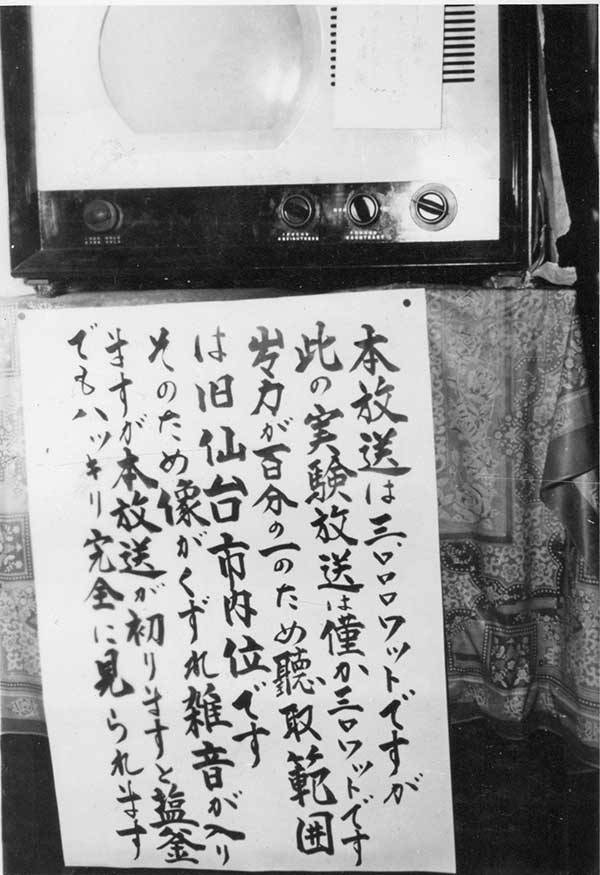 本放送は三、〇〇〇ワットですが
此の実験放送は僅か三〇ワットです
出力が百分の一のため聽取範囲
は旧仙台市内位です
そのため像がくずれ雑音が入り
ますが本放送が初りますと塩釜
でもハッキリ完全に見られます